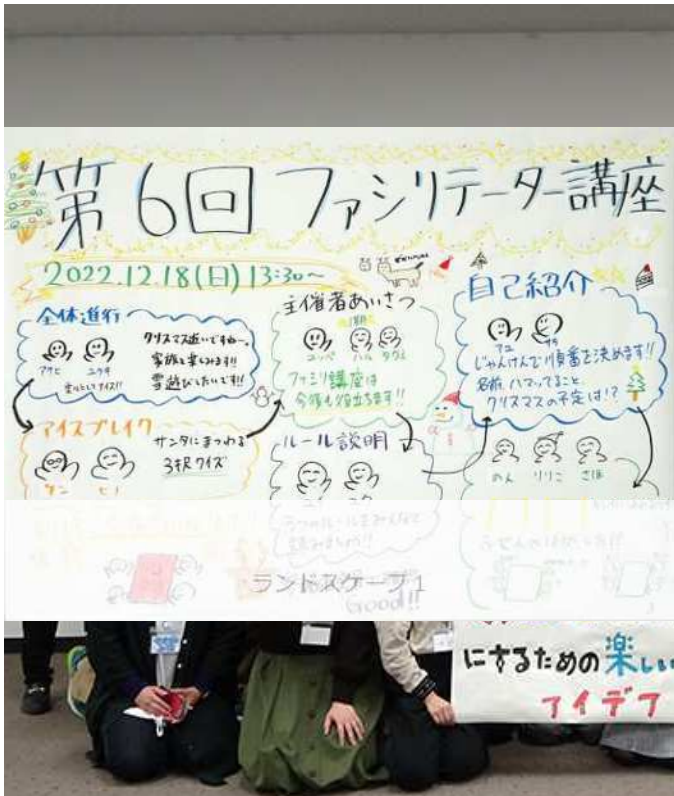 第6回 ファシリテーター講座
2022.12.18(日) 13:30~
全体進行
アサヒ ユウキ
クリスマス近いですねー。
家族と楽しみます!!
雪遊びしたいです!!
アイスブレイク
サンタにまつわる
3択クイズ
主催者あいさつ
ハル タクミ
ファシリ講座は
今後も役立ちます!!
ルール説明
3つのルールをみんなで
Good!!
自己紹介
じゃんけんで順番を決めます!!
名前、ハマってること、
クリスマスの予定は!?
のん りりこ さほ
ランドスケープ1
にするための楽しい
アイデア